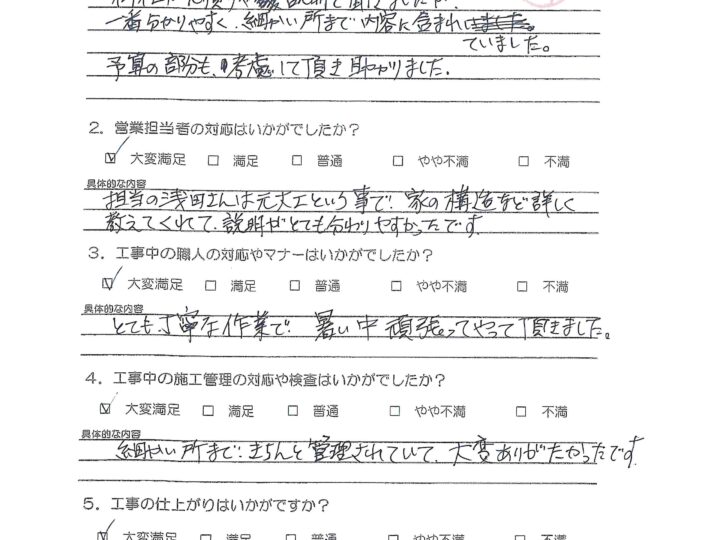 一番分かりやすく、細かい所まで内容に含まれ
ていました。
予算の部分も、考慮して頂き助かりました。
2. 営業担当者の対応はいかがでしたか？
☑ 大変満足 □ 満足 □ 普通 □ やや不満 □ 不満
具体的な内容
担当の浅田さんは元大工という事で、家の構造など詳しく
教えてくれて、説明がとても分かりやすかったです。
3. 工事中の職人の対応やマナーはいかがでしたか？
☑ 大変満足 □ 満足 □ 普通 □ やや不満 □ 不満
具体的な内容
とても丁寧な作業で、暑い中頑張ってやって頂きました。
4. 工事中の施工管理の対応や検査はいかがでしたか？
☑ 大変満足 □ 満足 □ 普通 □ やや不満 □ 不満
具体的な内容
細かい所まできちんと管理されていて、大変ありがたかったです。
5. 工事の仕上がりはいかがですか？
☑ 大変満足 □ 満足 □ 普通 □ やや不満 □ 不満